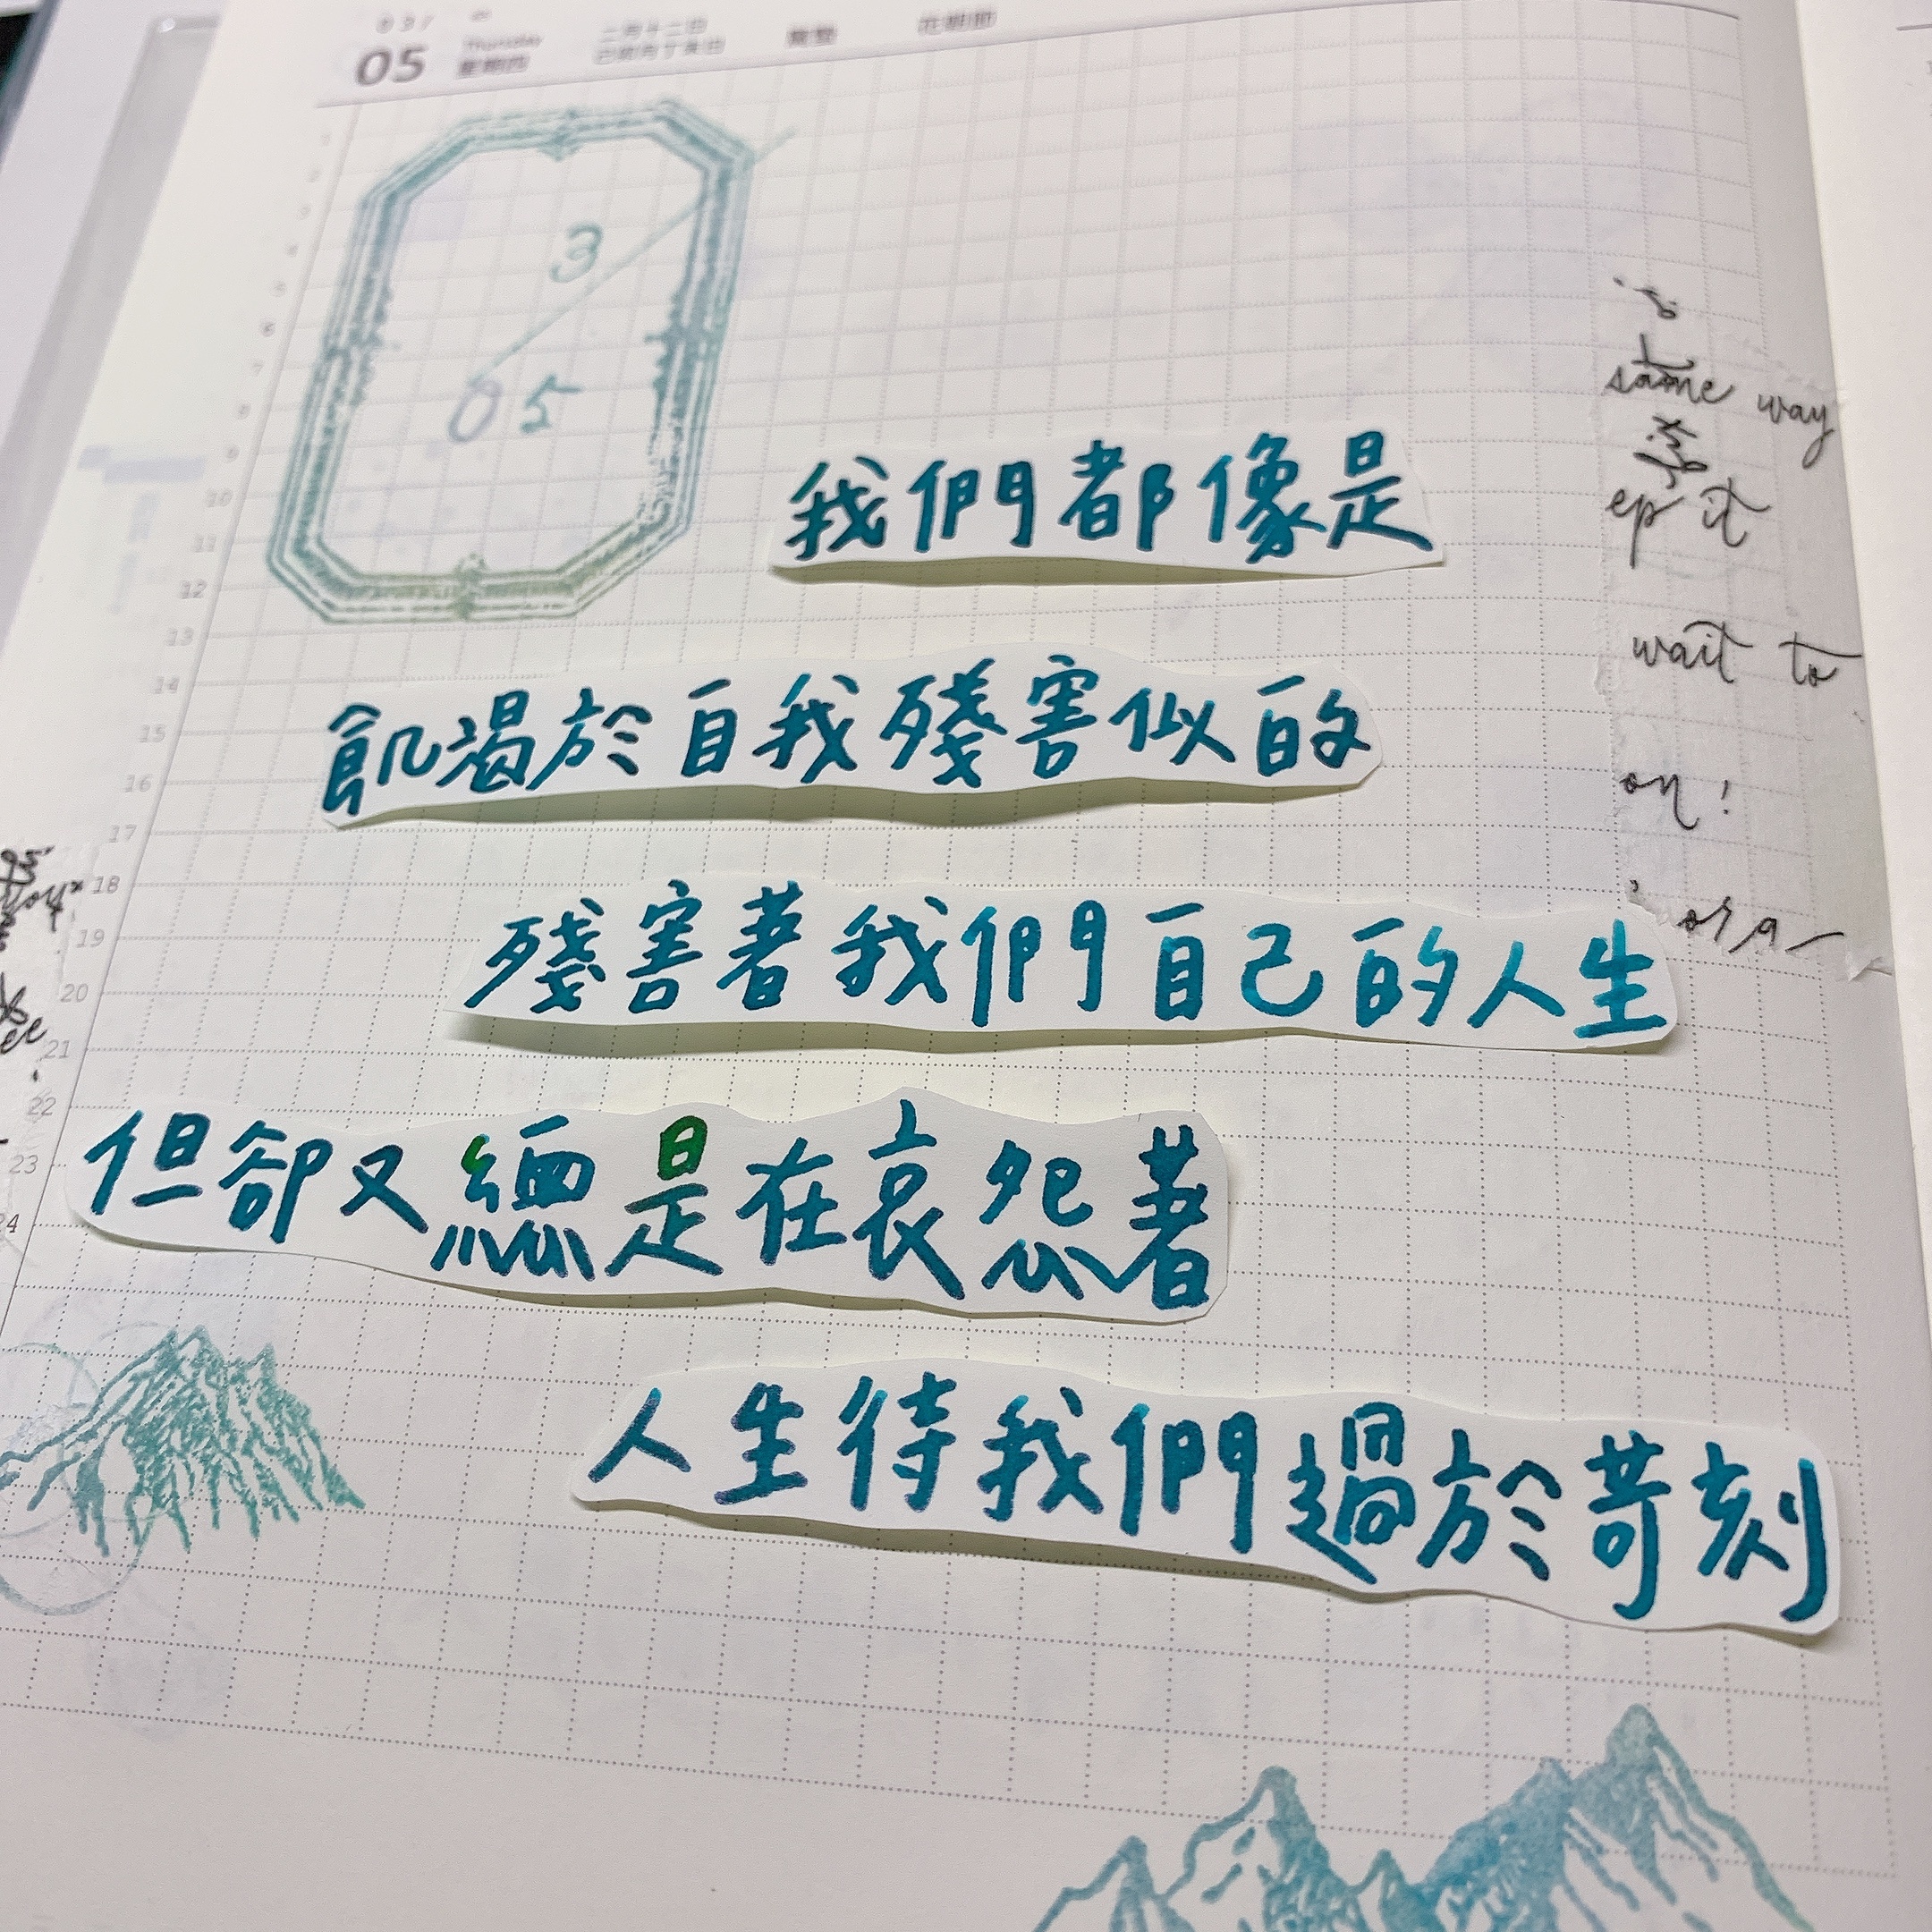 05 Thursday 星期四
3
05
我們都像是
飢渴於自我殘害似的
殘害著我們自己的人生
但卻又總是在哀怨著
人生待我們過於苛刻
same way
ep it
wait to
on!
6
7
8
9
10
11
12
13
14
15
16
17
18
19
20
21
22
23
24